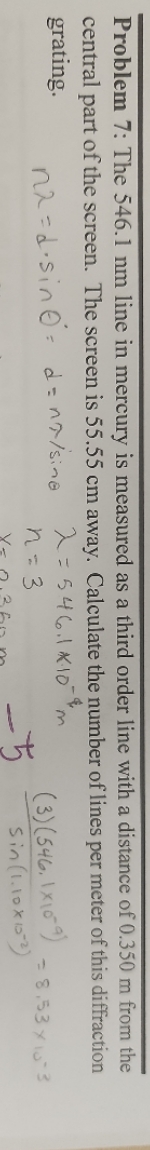 Problem 7: The 546.1 nm line in mercury is measured as a third order line with a distance of 0.350 m from the
central part of the screen. The screen is 55.55 cm away. Calculate the number of lines per meter of this diffraction
grating.
nλ = d·sinθ = d = nλ/sinθ
λ = 546.1 × 10⁻⁹ m
n = 3
-5
(3)(546.1×10⁻⁹) = 8.53 × 10⁻³
sin(1.10×10⁻²)